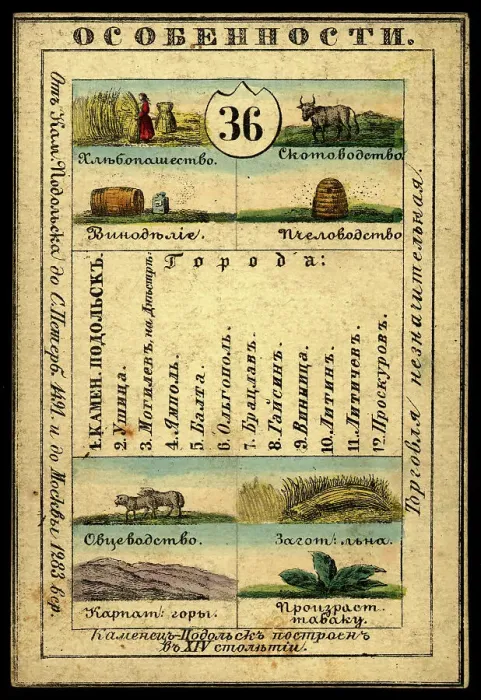 ОСОБЕННОСТИ.
36
Хлѣбопашество.
Скотоводство
Винодѣліе.
Пчеловодство
Города:
1. КАМЕН. ПОДОЛЬСКЪ.
2. Ушица.
3. Могилевъ, на Днѣстрѣ.
4. Ямполь.
5. Балта.
6. Ольгополь.
7. Брацлав.
8. Гайсин.
9. Винница.
10. Литин.
11. Литичев.
12. Проскуров.
Овцеводство.
Загот: льна.
Карпат: горы.
Произраст.
табаку.
Каменецъ-Подольскъ построенъ
въ XIV столѣтіи.
Отъ Кам. Подольска до С. Петерб. 1491. и до Москвы 1283 вер.
Торговля незначительная.